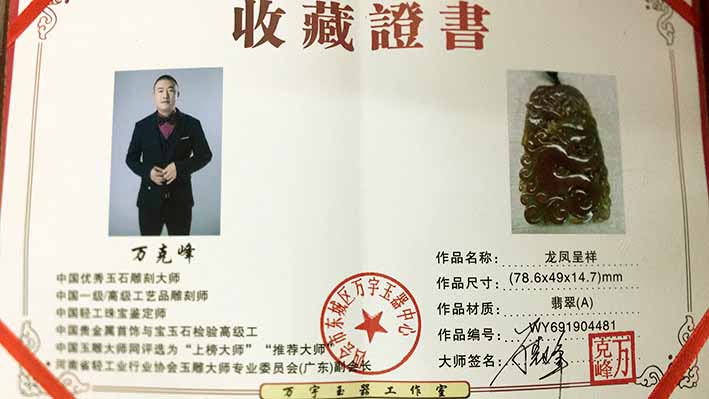 收藏證書
万克峰
中国优秀玉石雕刻大师
中国一级/高级工艺品雕刻师
中国轻工珠宝鉴定师
中国贵金属首饰与宝玉石检验高级工
中国玉雕大师网评选为“上榜大师”“推荐大师”
河南省轻工业行业协会玉雕大师专业委员会(广东)副会长
会市东城区万宇玉器中心
作品名称: 龙凤呈祥
作品尺寸: (78.6x49x14.7)mm
作品材质: 翡翠(A)
作品编号: WY691904481
大师签名:
万克峰
万宇玉器工作室